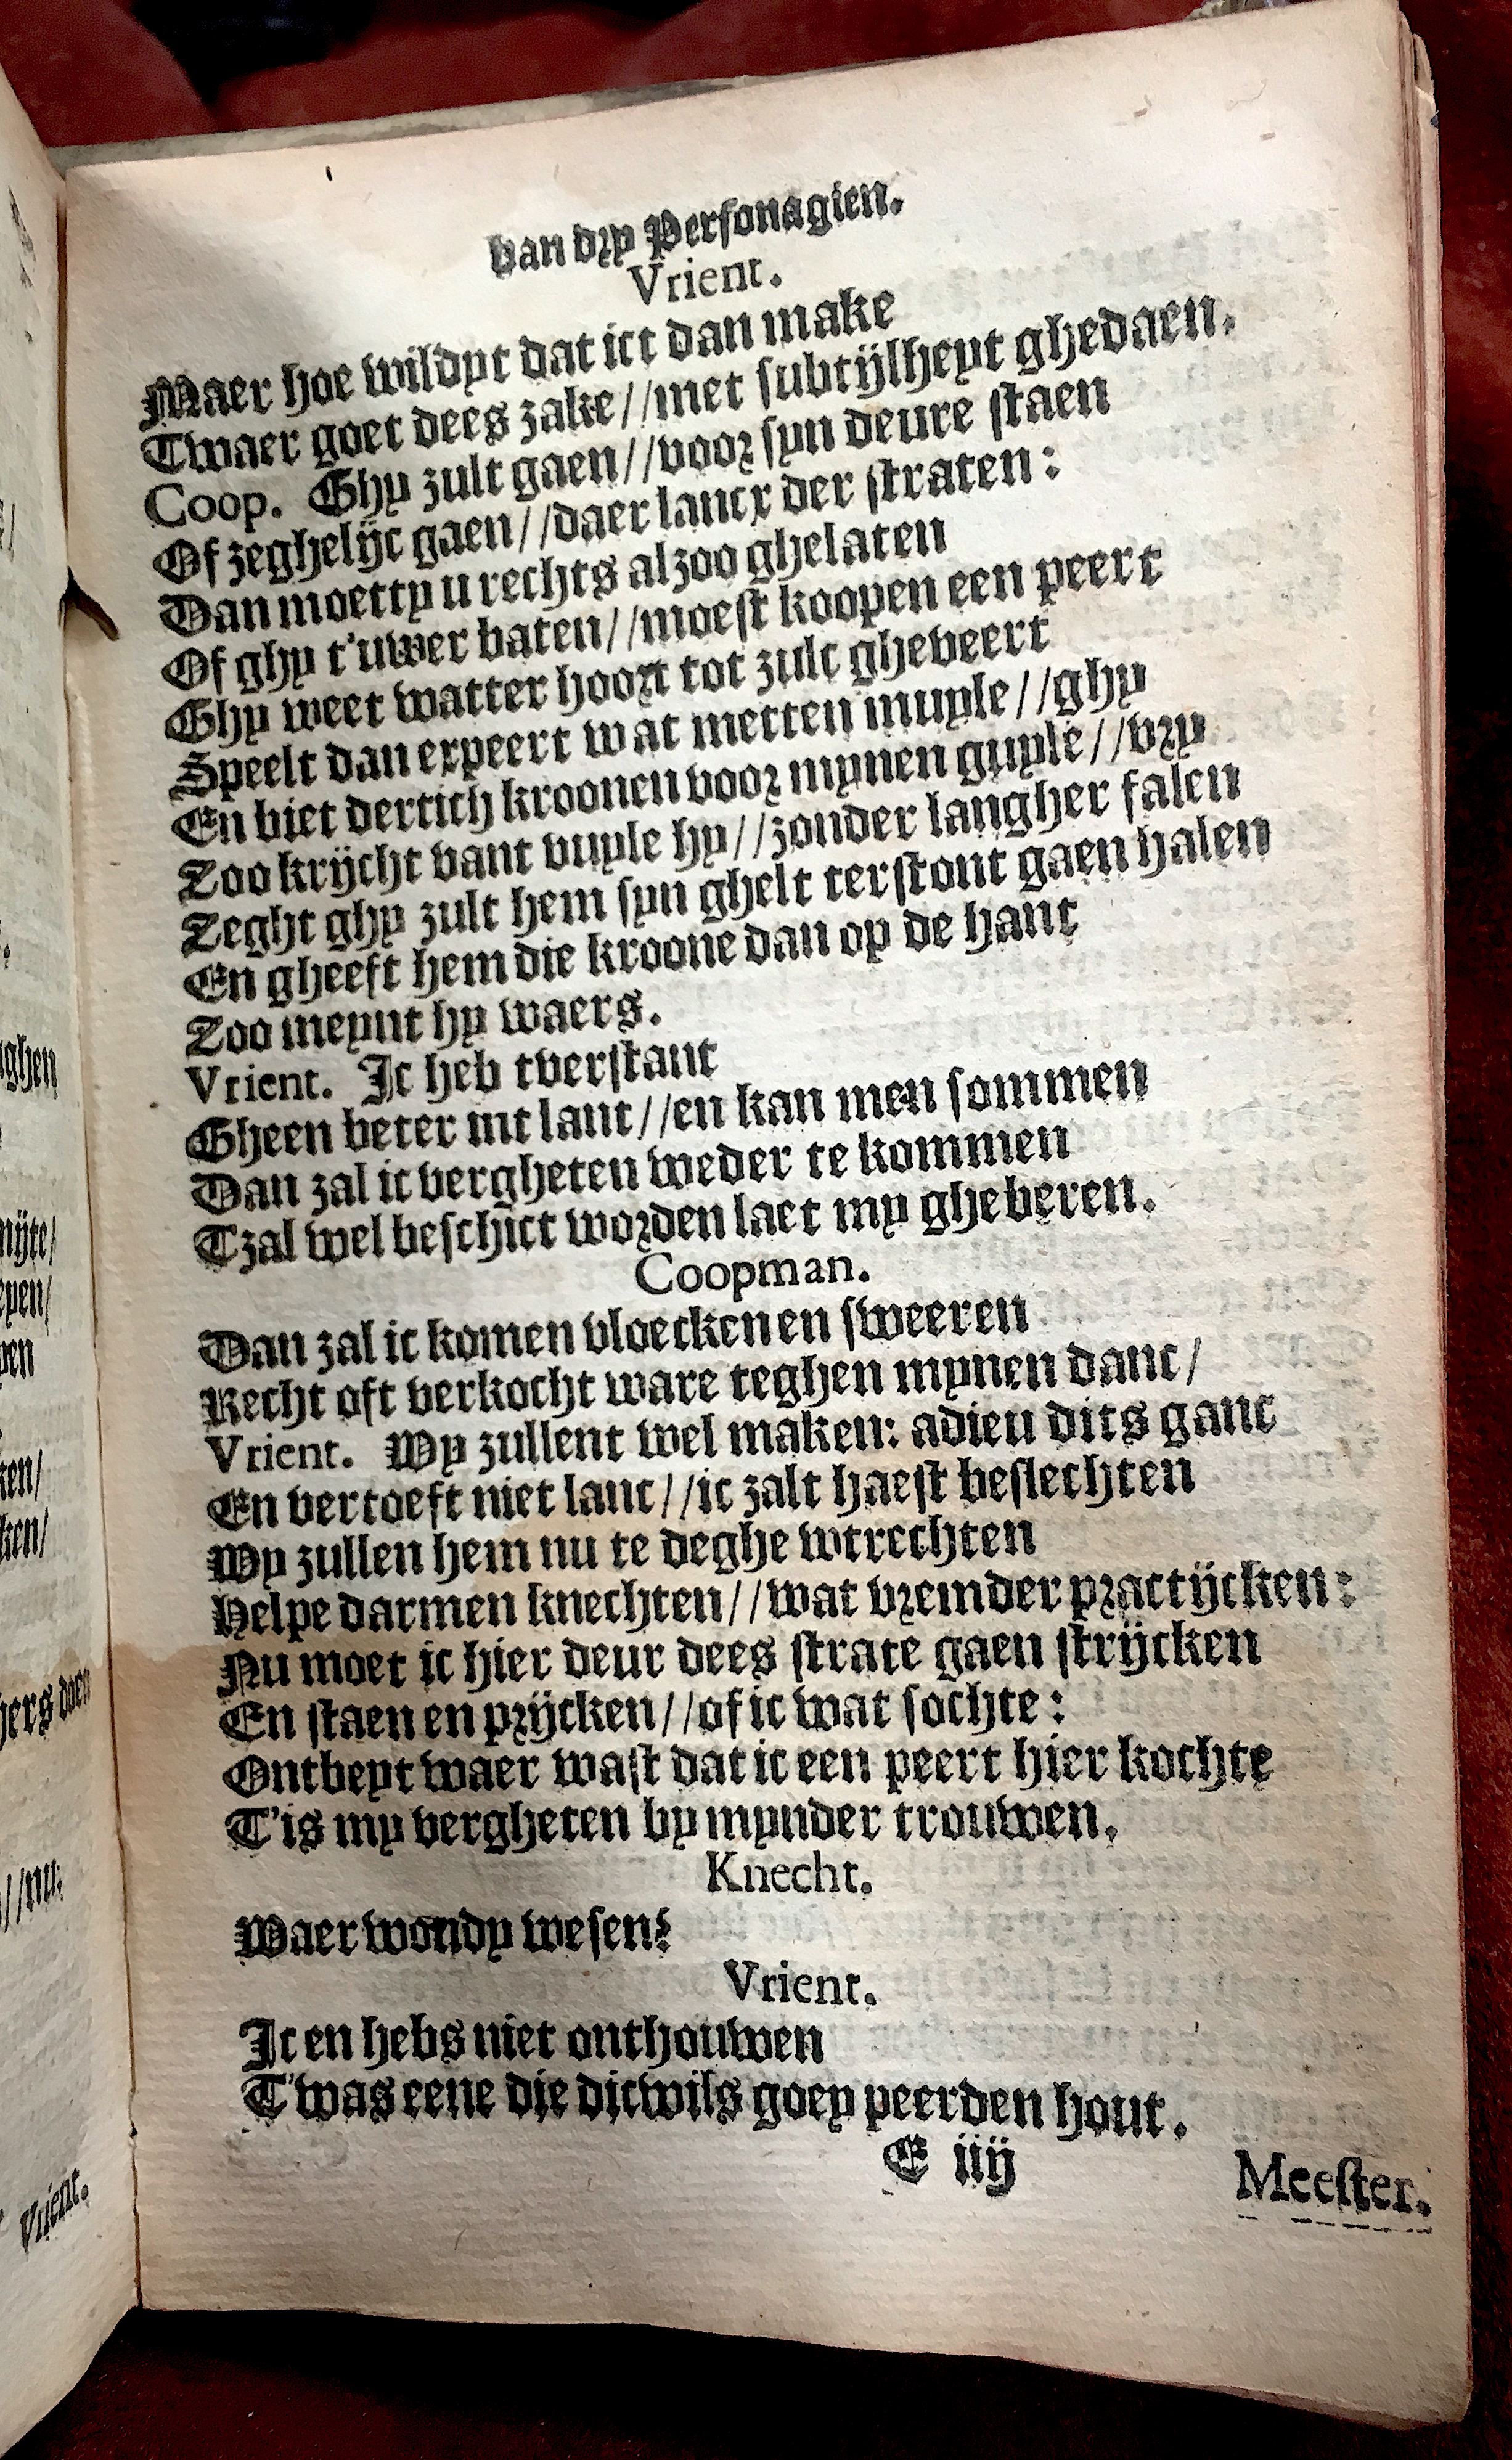 van dry Personagien.
Vrient.
Maer hoe wildyt dat ict dan make
Twaer goet dees zake//met subtijlheyt ghedaen.
Coop. Ghy zult gaen//voor syn deure staen
Of zeghelijc gaen//daer lancx der straten:
Dan moetty u rechts alzoo ghelaten
Of ghy t'uwer baten//moest koopen een peert
Ghy weet watter hoort tot zulc gheveert
Speelt dan expeert wat metten muyle//ghy
En biet dertich kroonen voor mynen guyle//vry
Zoo krijcht vant vuyle hy//zonder langher falen
Zeght ghy zult hem syn ghelt terstont gaen halen
En gheeft hem die kroone dan op de hant
Zoo meynt hy waers.
Vrient. Ic heb tverstant
Gheen beter int lant//en kan men sommen
Dan zal ic vergheten weder te kommen
Tzal wel beschict worden laet my gheberen.
Coopman.
Dan zal ic komen vloecken en sweeren
Recht oft verkocht ware teghen mynen danc/
Vrient. Wy zullent wel maken: adieu dits ganc
En vertoeft niet lanc//ic zalt haest beslechten
Wy zullen hem nu te deghe wtrechten
Helpe darmen knechten//wat vremder practijcken:
Nu moet ic hier deur dees strate gaen strijcken
En staen en prijcken//of ic wat sochte:
Ontbeyt waer wast dat ic een peert hier kochte
T'is my vergheten by mynder trouwen.
Knecht.
Waer wondy wesen?
Vrient.
Ic en hebs niet onthouwen
T'was eene die dicwils goey peerden hout.
E iiij
Meester.
ghen
nijte/
epen/
pen
ken/
ken/
hers doen
//nu:
Vrient.